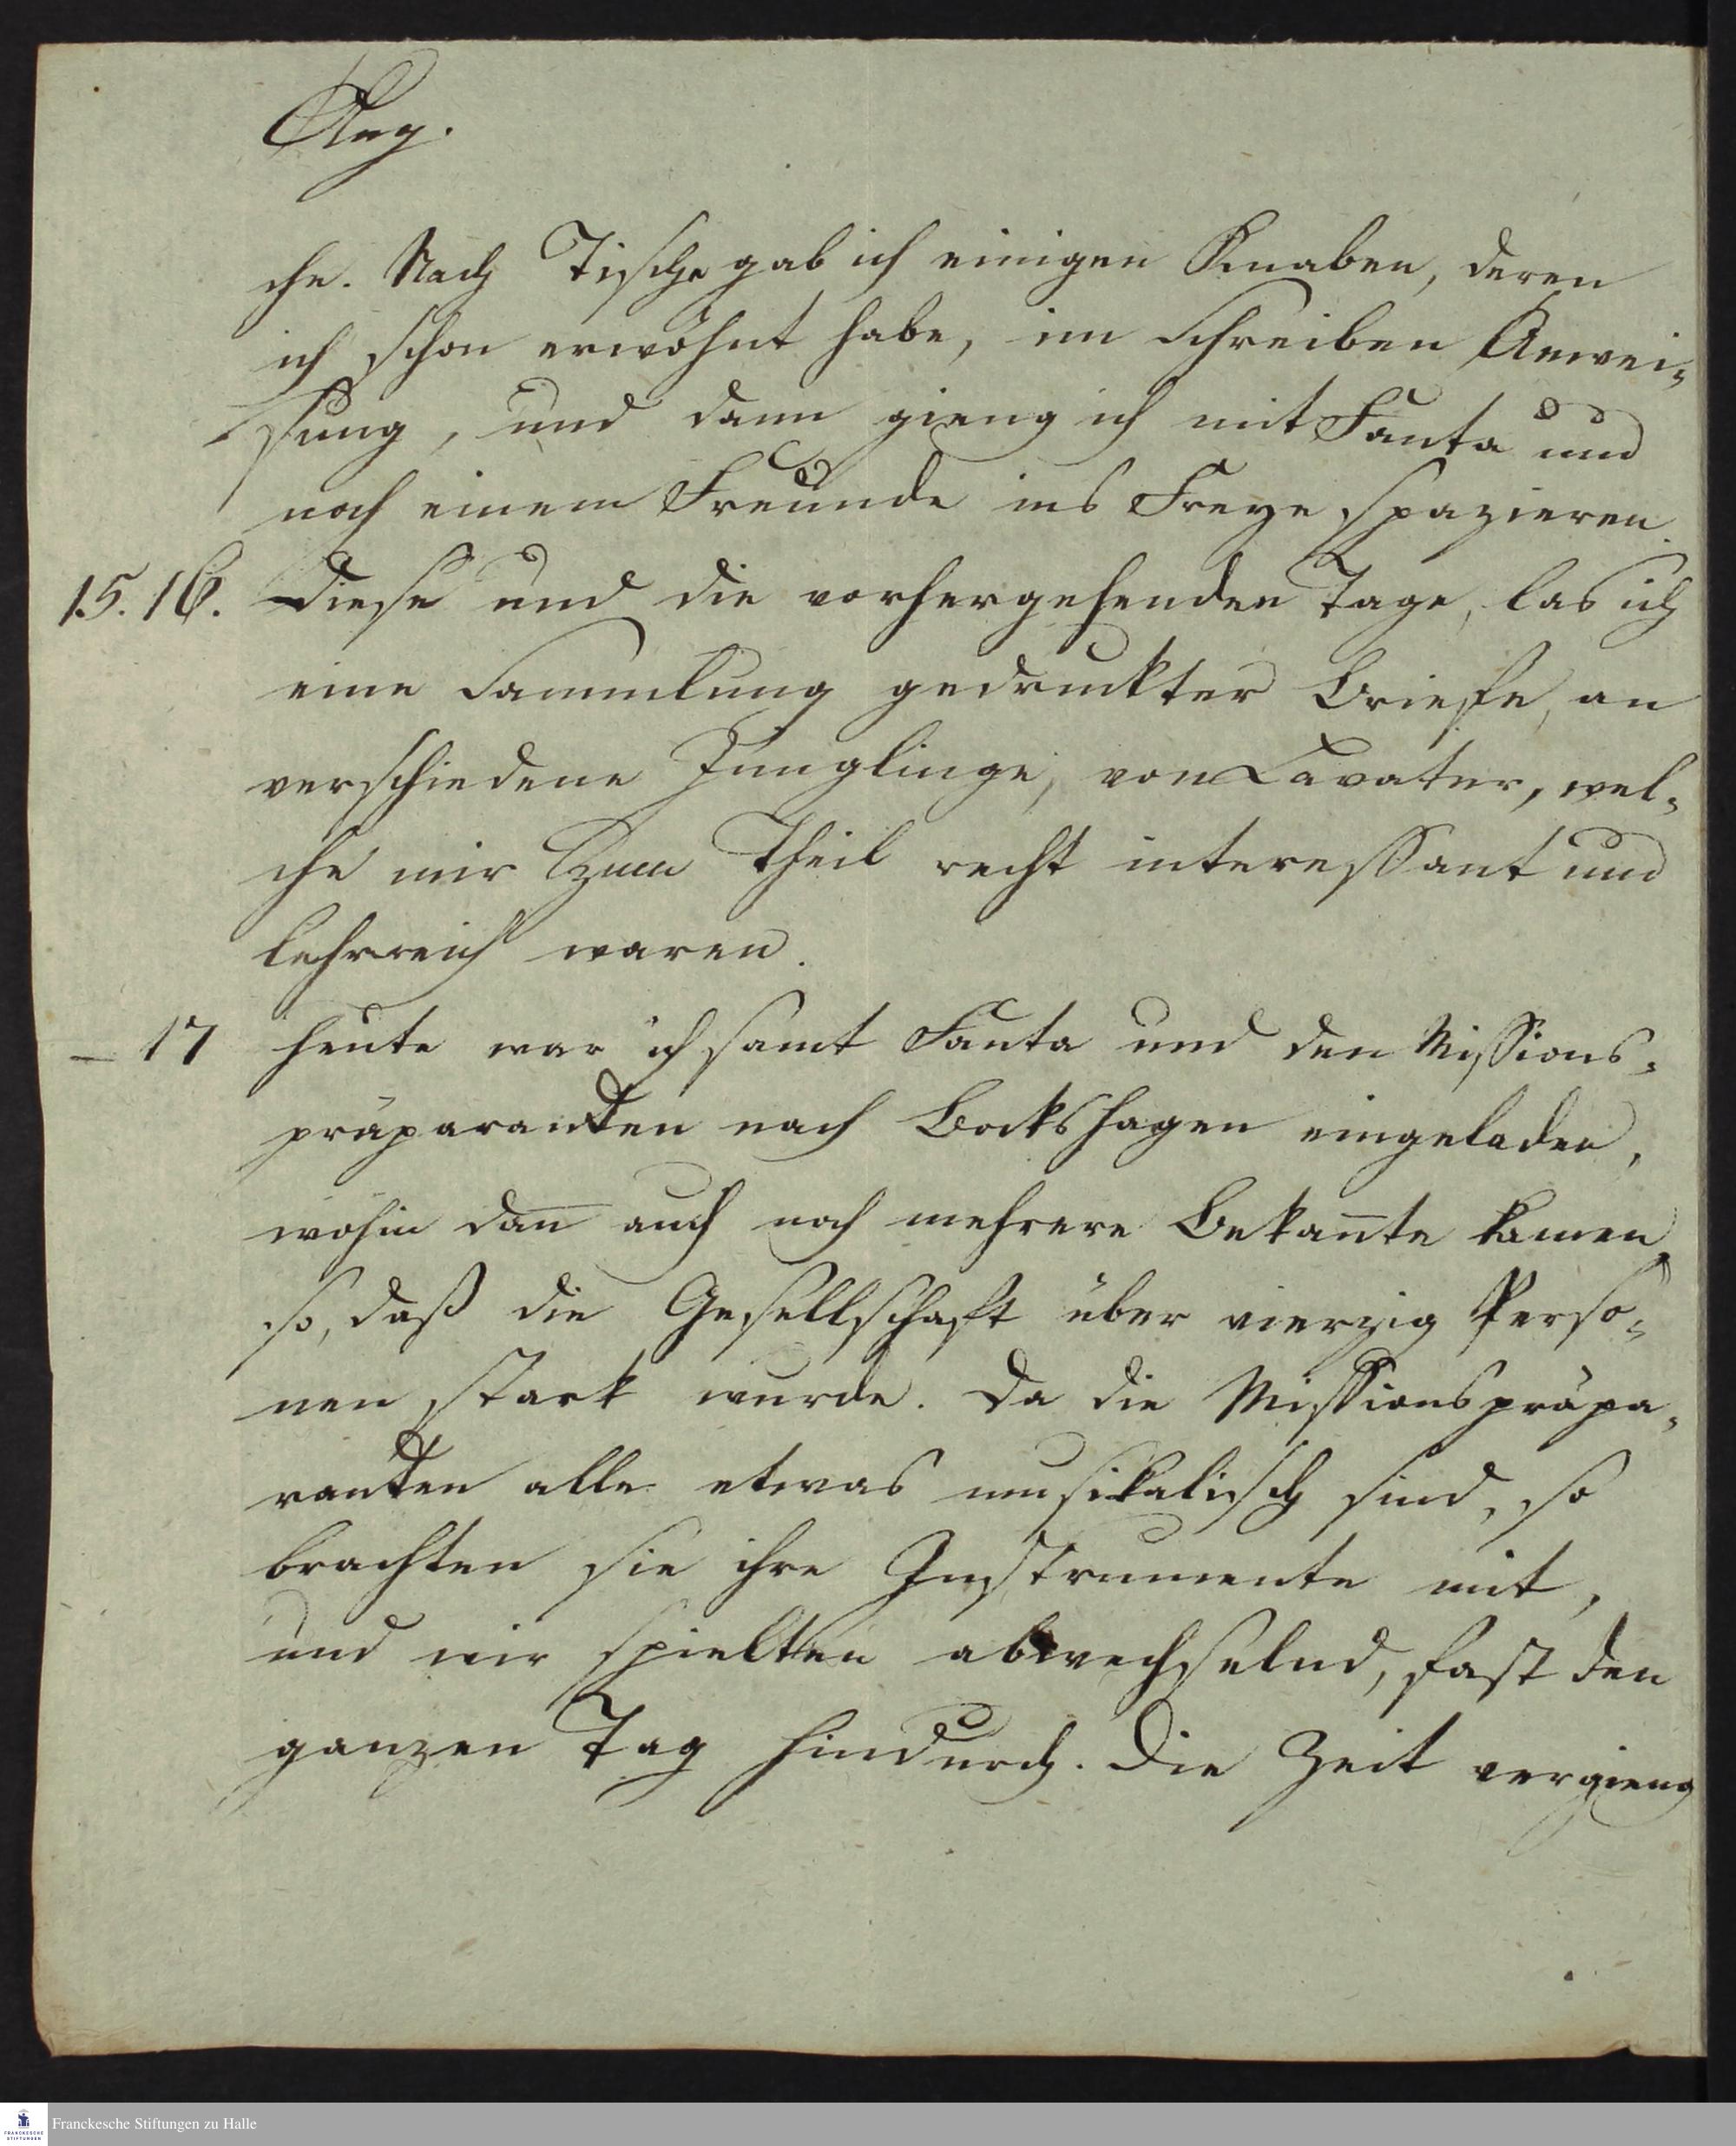 Aug.
che. Nach Tische gab ich einigen Knaben, deren
ich schon erwähnt habe, im Schreiben Anwei-
sung, und dann gieng ich mit Fanta und
noch einem Freunde ins Freye spazieren.
15. 16. Diese und die vorhergehenden Tage, las ich
eine Sammlung gedruckter Briefe, an
verschiedene Jünglinge, von Lavater, wel-
che mir zum Theil recht interessant und
lehrreich waren.
– 17 Heute war ich samt Fanta und den Missions-
präparanden nach Bockshagen eingeladen,
wohin dan̄ auch noch mehrere Bekan̄te kamen,
so, daß die Gesellschaft über vierzig Perso-
nen stark wurde. Da die Missionspräpa-
randen alle etwas musikalisch sind, so
brachten sie ihre Instrumente mit,
und wir spielten abwechselnd, fast den
ganzen Tag hindurch. Die Zeit vergieng
Franckesche Stiftungen zu Halle
FRANCKESCHE
STIFTUNGEN